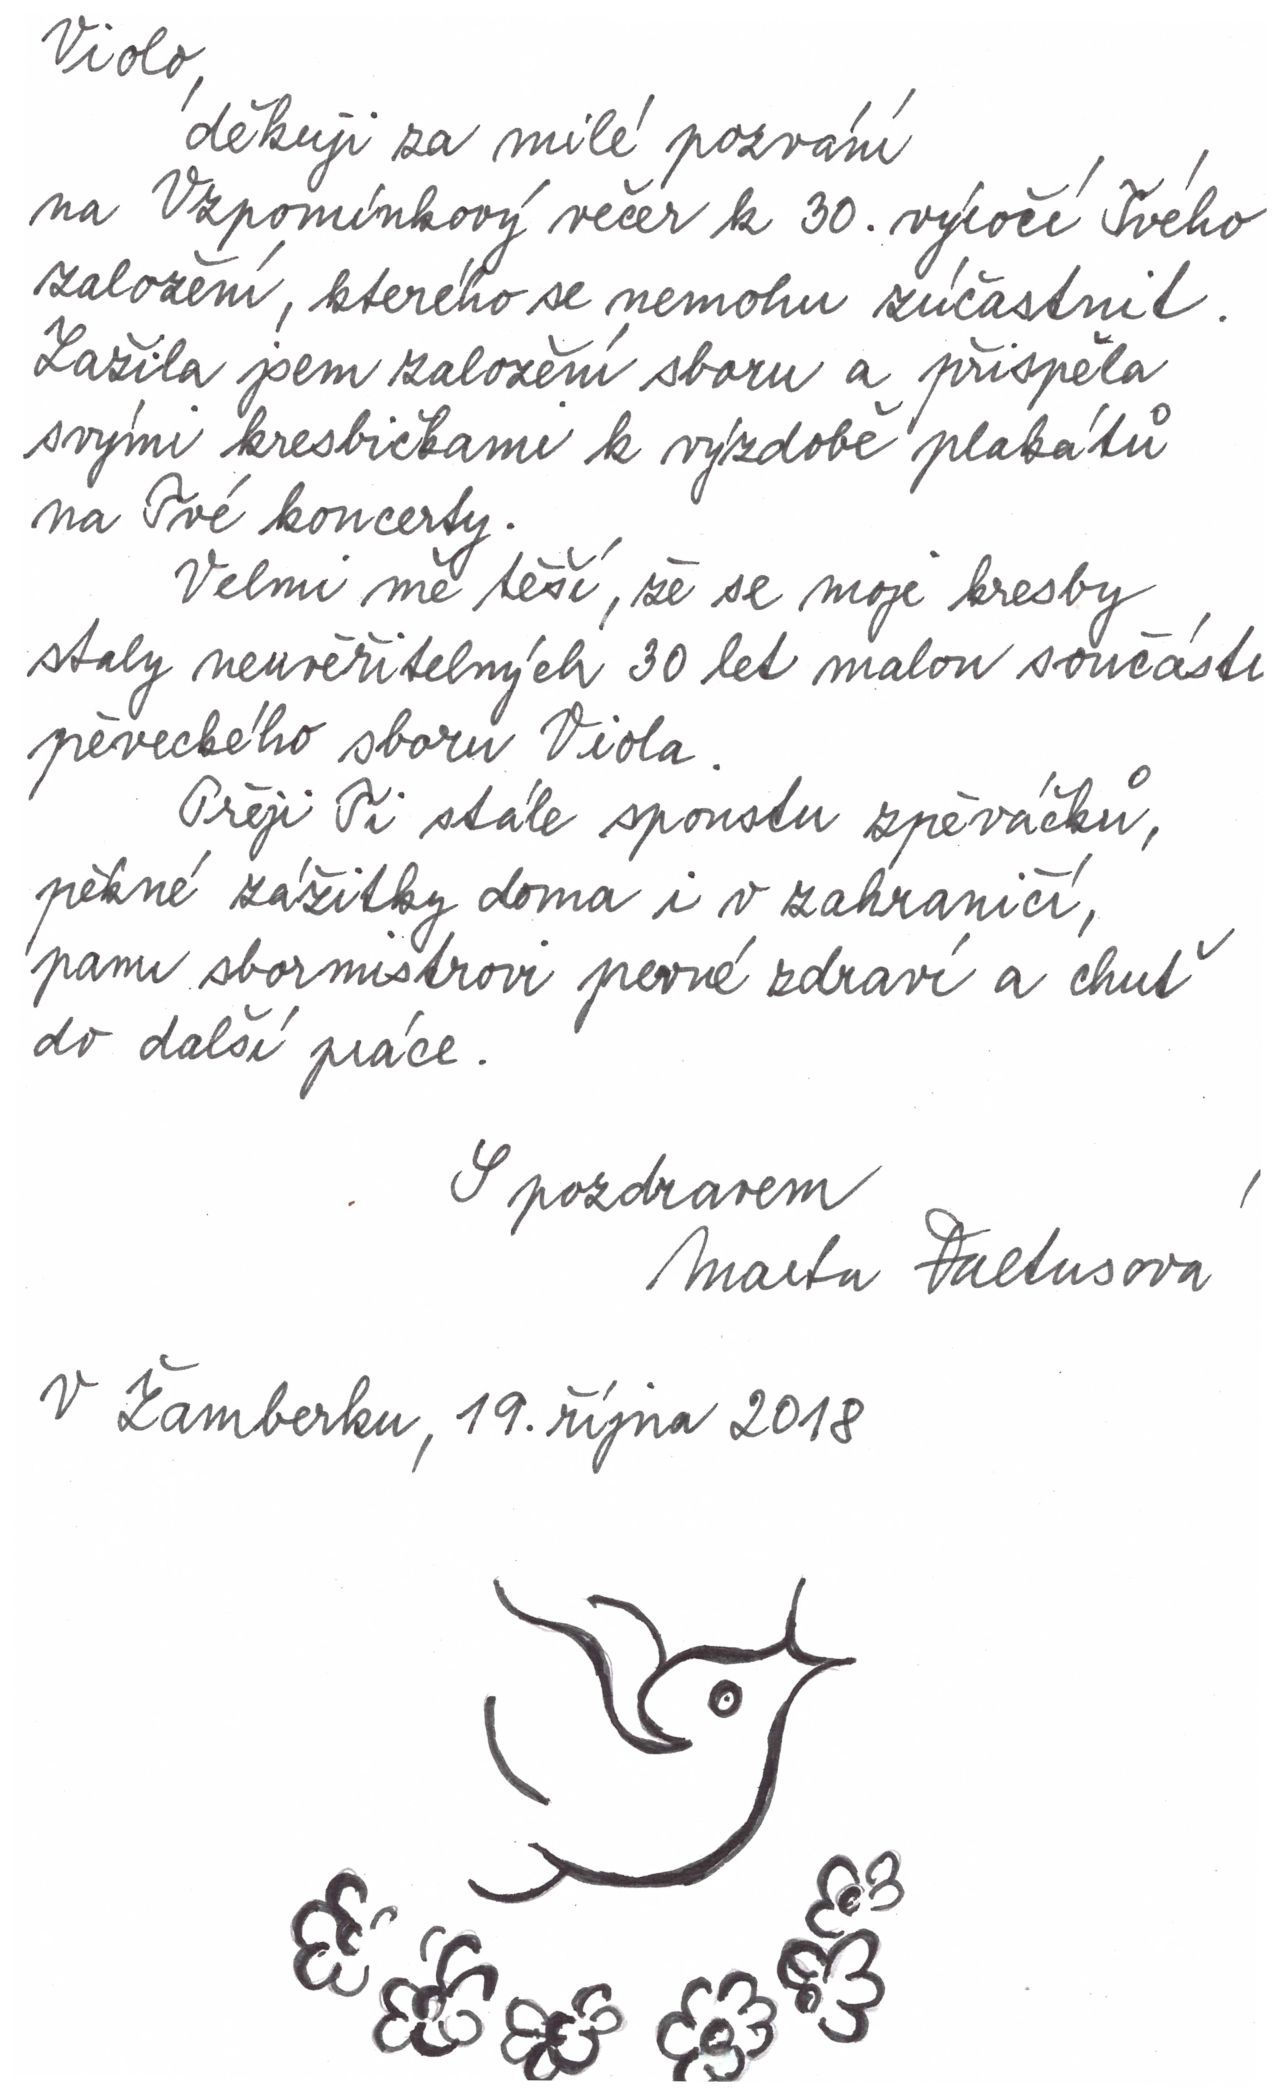 Violo,
děkuji za milé pozvání
na Vzpomínkový večer k 30. výročí Tvého
založení, kterého se nemohu zúčastnit.
Zažila jsem založení sboru a přispěla
svými kresbičkami k výzdobě plakátů
na Tvé koncerty.
Velmi mě těší, že se moje kresby
staly neuvěřitelných 30 let malou součástí
pěveckého sboru Viola.
Přeji Ti stále spoustu zpěváčků,
pěkné zážitky doma i v zahraničí,
panu sbormistrovi pevné zdraví a chuť
do další práce.
S pozdravem
Marta
V Žamberku, 19. října 2018